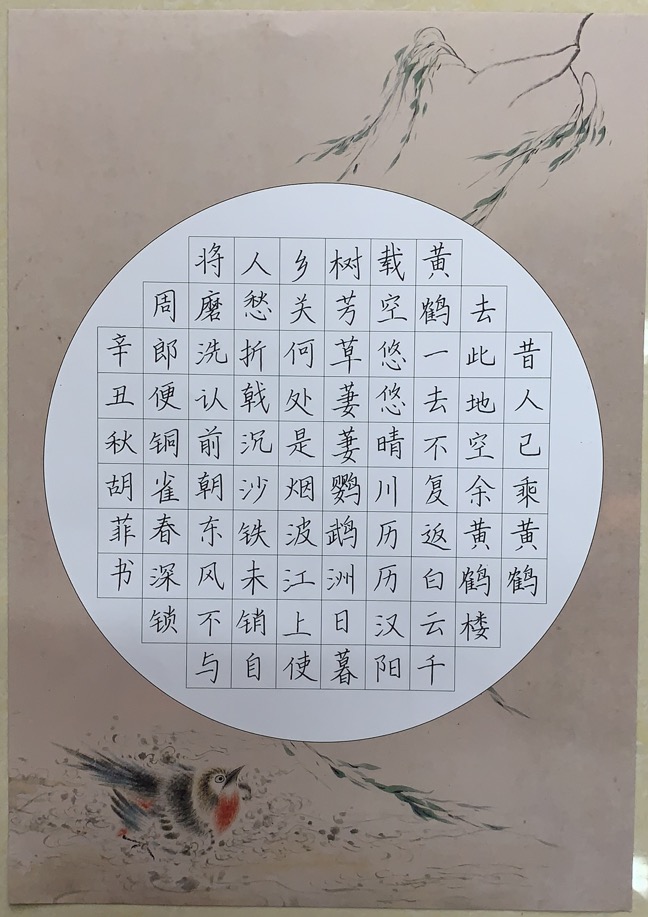 昔人已乘黄鹤
去此地空余黄鹤楼
黄鹤一去不复返白云千
载空悠悠晴川历历汉阳
树芳草萋萋鹦鹉洲日暮
乡关何处是烟波江上使
人愁折戟沉沙铁未销自
将磨洗认前朝东风不与
周郎便铜雀春深锁
辛丑秋胡菲书